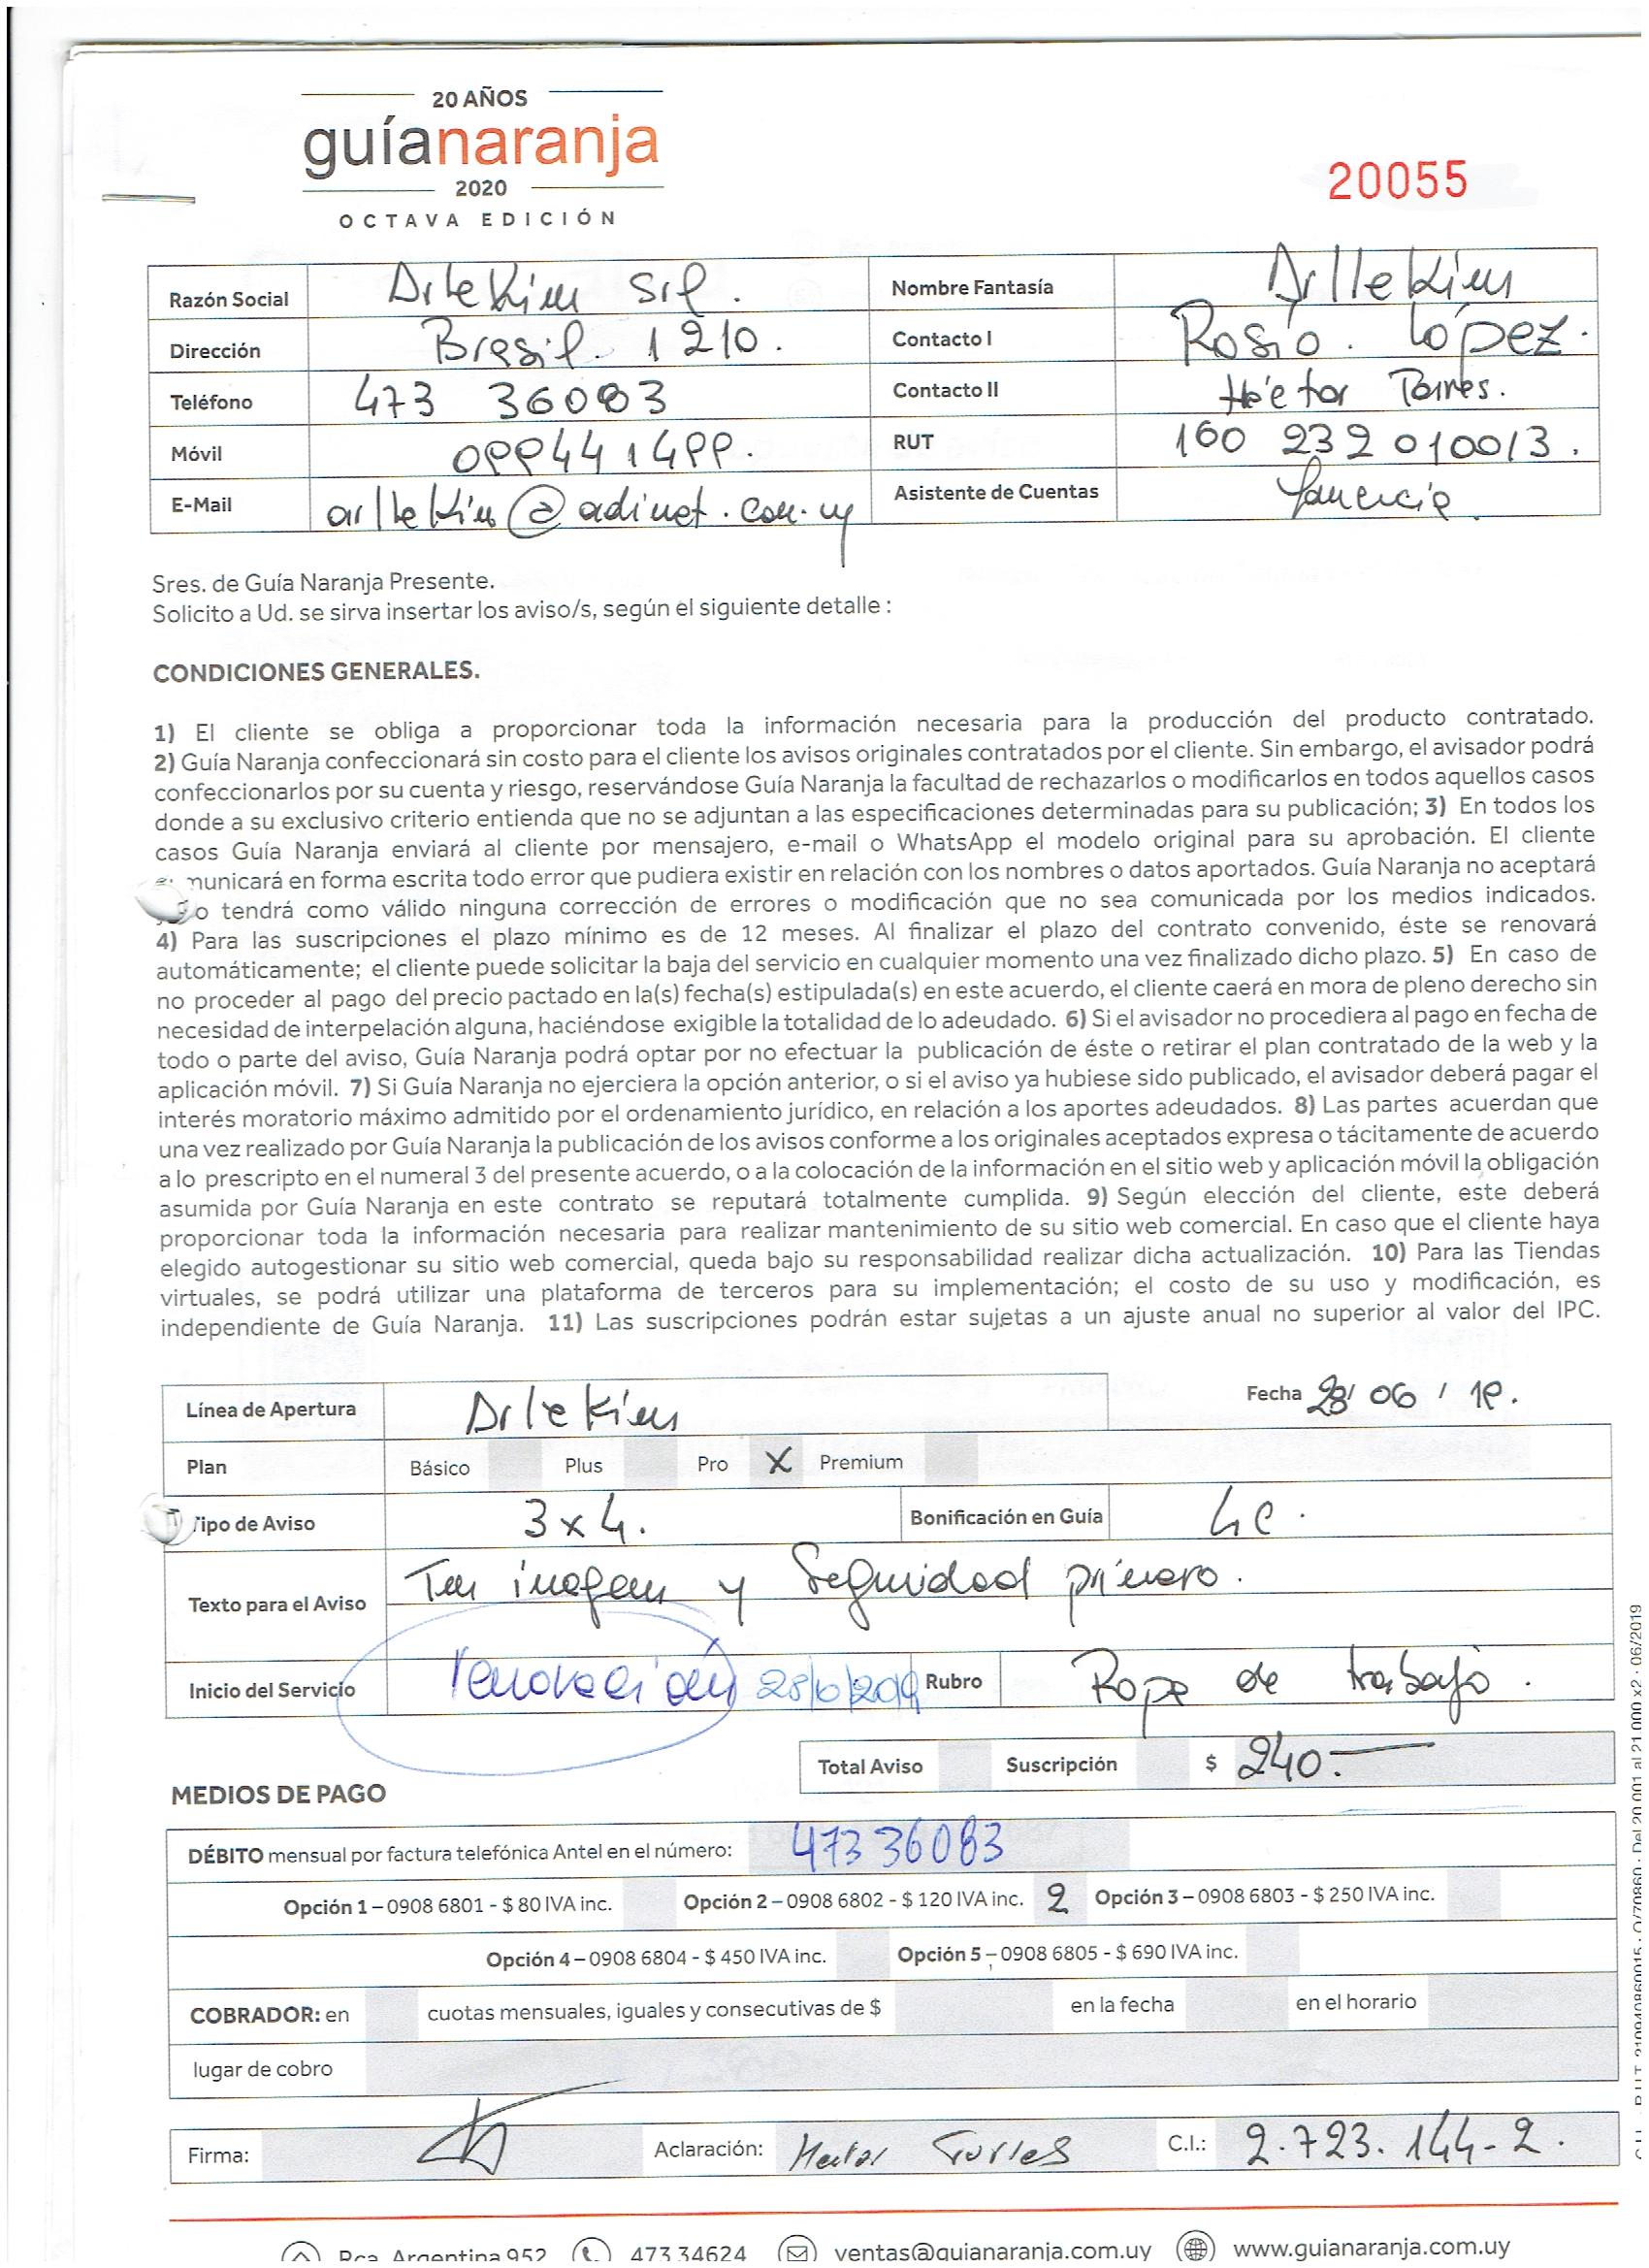 20 AÑOS
guíanaranja
2020
OCTAVA EDICIÓN
20055
Razón Social Arlekim Srl. Nombre Fantasía Arllekim
Dirección Brasil. 1210. Contacto I Rosío. López.
Teléfono 473 36083 Contacto II Héctor Torres.
Móvil 099441499. RUT 160 232 010013.
E-Mail arllekin@adinet.com.uy Asistente de Cuentas
Sres. de Guía Naranja Presente.
Solicito a Ud. se sirva insertar los aviso/s, según el siguiente detalle :
CONDICIONES GENERALES.
1) El cliente se obliga a proporcionar toda la información necesaria para la producción del producto contratado.
2) Guía Naranja confeccionará sin costo para el cliente los avisos originales contratados por el cliente. Sin embargo, el avisador podrá
confeccionarlos por su cuenta y riesgo, reservándose Guía Naranja la facultad de rechazarlos o modificarlos en todos aquellos casos
donde a su exclusivo criterio entienda que no se adjuntan a las especificaciones determinadas para su publicación; 3) En todos los
casos Guía Naranja enviará al cliente por mensajero, e-mail o WhatsApp el modelo original para su aprobación. El cliente
municará en forma escrita todo error que pudiera existir en relación con los nombres o datos aportados. Guía Naranja no aceptará
o tendrá como válido ninguna corrección de errores o modificación que no sea comunicada por los medios indicados.
4) Para las suscripciones el plazo mínimo es de 12 meses. Al finalizar el plazo del contrato convenido, éste se renovará
automáticamente; el cliente puede solicitar la baja del servicio en cualquier momento una vez finalizado dicho plazo. 5) En caso de
no proceder al pago del precio pactado en la(s) fecha(s) estipulada(s) en este acuerdo, el cliente caerá en mora de pleno derecho sin
necesidad de interpelación alguna, haciéndose exigible la totalidad de lo adeudado. 6) Si el avisador no procediera al pago en fecha de
todo o parte del aviso, Guía Naranja podrá optar por no efectuar la publicación de éste o retirar el plan contratado de la web y la
aplicación móvil. 7) Si Guía Naranja no ejerciera la opción anterior, o si el aviso ya hubiese sido publicado, el avisador deberá pagar el
interés moratorio máximo admitido por el ordenamiento jurídico, en relación a los aportes adeudados. 8) Las partes acuerdan que
una vez realizado por Guía Naranja la publicación de los avisos conforme a los originales aceptados expresa o tácitamente de acuerdo
a lo prescripto en el numeral 3 del presente acuerdo, o a la colocación de la información en el sitio web y aplicación móvil la obligación
asumida por Guía Naranja en este contrato se reputará totalmente cumplida. 9) Según elección del cliente, este deberá
proporcionar toda la información necesaria para realizar mantenimiento de su sitio web comercial. En caso que el cliente haya
elegido autogestionar su sitio web comercial, queda bajo su responsabilidad realizar dicha actualización. 10) Para las Tiendas
virtuales, se podrá utilizar una plataforma de terceros para su implementación; el costo de su uso y modificación, es
independiente de Guía Naranja. 11) Las suscripciones podrán estar sujetas a un ajuste anual no superior al valor del IPC.
Línea de Apertura Arlekim Fecha 28/ 06 / 19.
Plan Básico Plus Pro X Premium
Tipo de Aviso 3x4. Bonificación en Guía 4c.
Texto para el Aviso Tu imagem y Seguridad primero.
Inicio del Servicio renovación 28/6/2019 Rubro Ropa de trabajo.
Total Aviso Suscripción $ 240.—
MEDIOS DE PAGO
DÉBITO mensual por factura telefónica Antel en el número: 47336083
Opción 1 – 0908 6801 - $ 80 IVA inc. Opción 2 – 0908 6802 - $ 120 IVA inc. 2 Opción 3 – 0908 6803 - $ 250 IVA inc.
Opción 4 – 0908 6804 - $ 450 IVA inc. Opción 5 – 0908 6805 - $ 690 IVA inc.
COBRADOR: en cuotas mensuales, iguales y consecutivas de $ en la fecha en el horario
lugar de cobro
Firma: Aclaración: Hector Torres C.I.: 2.723.144-2.
Rca. Argentina 952 473 34624 ventas@guianaranja.com.uy www.guianaranja.com.uy
Del 20.001 al 21.000 x2 - 06/2019